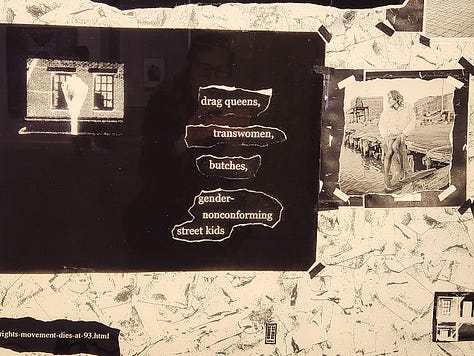 drag queens,
transwomen,
butches,
gender-
nonconforming
street kids
rights-movement-dies-at-93.html